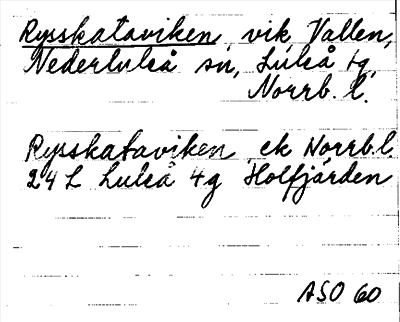 Rysskataviken, vik, Vallen,
Nederluleå sn, Luleå tg,
Norrb. l.
Rysskataviken ek Norrb.l.
24 L Luleå 4g Holfjärden
ASO 60